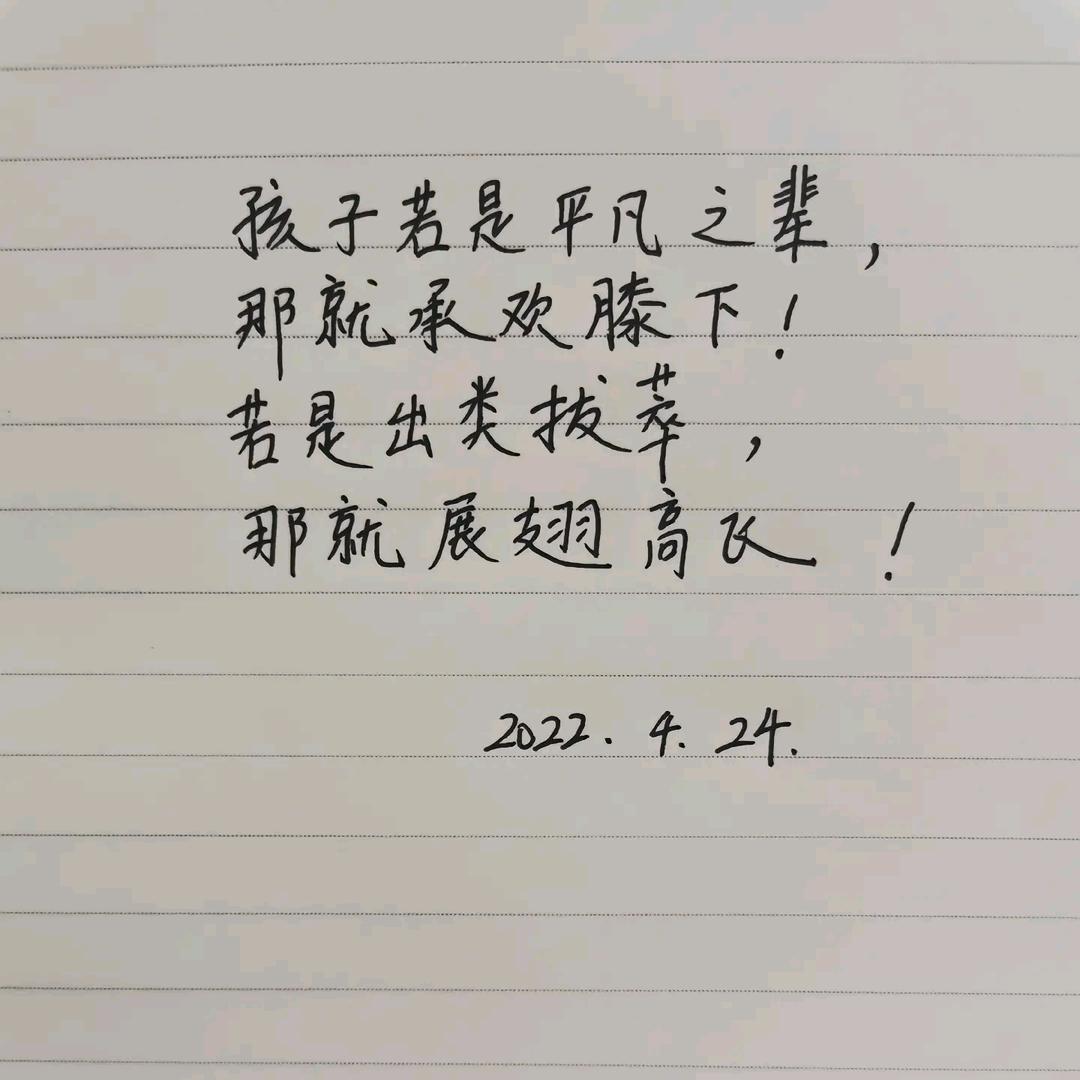 孩子若是平凡之辈，
那就承欢膝下！
若是出类拔萃，
那就展翅高飞！
2022.4.24.